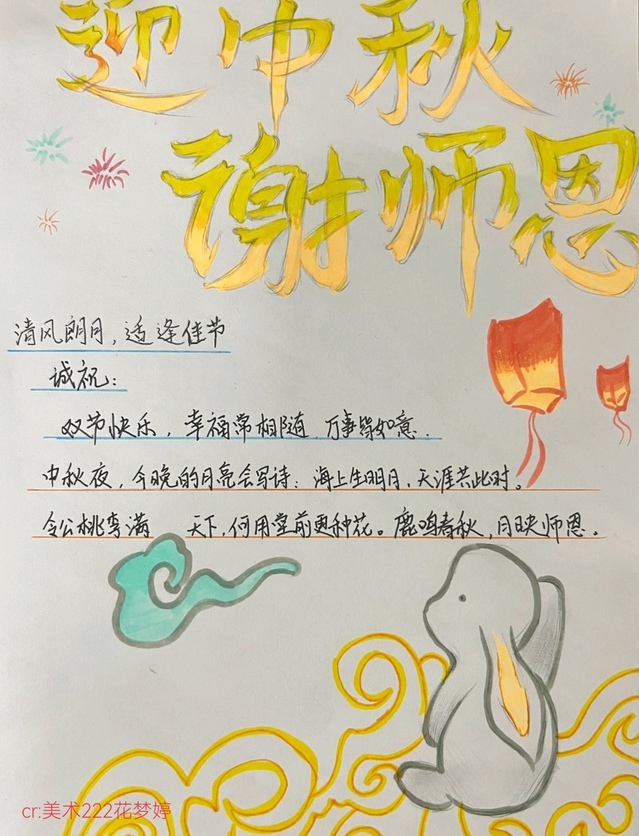 迎中秋
谢师恩
清风朗月，适逢佳节
诚祝：
双节快乐，幸福常相随，万事皆如意．
中秋夜，今晚的月亮会写诗：海上生明月，天涯共此时。
令公桃李满 天下，何用堂前更种花。鹿鸣春秋，月映师恩．
cr:美术222花梦婷